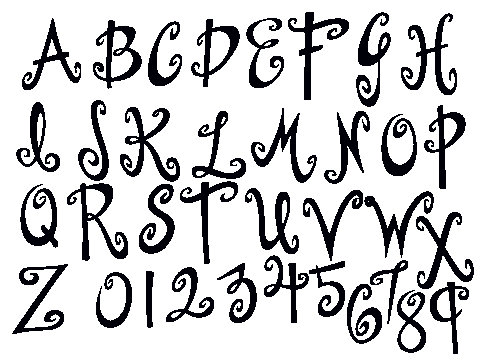 A B C D E F G H
I J K L M N O P
Q R S T U V W X
Z 0 1 2 3 4 5 6 7 8 9